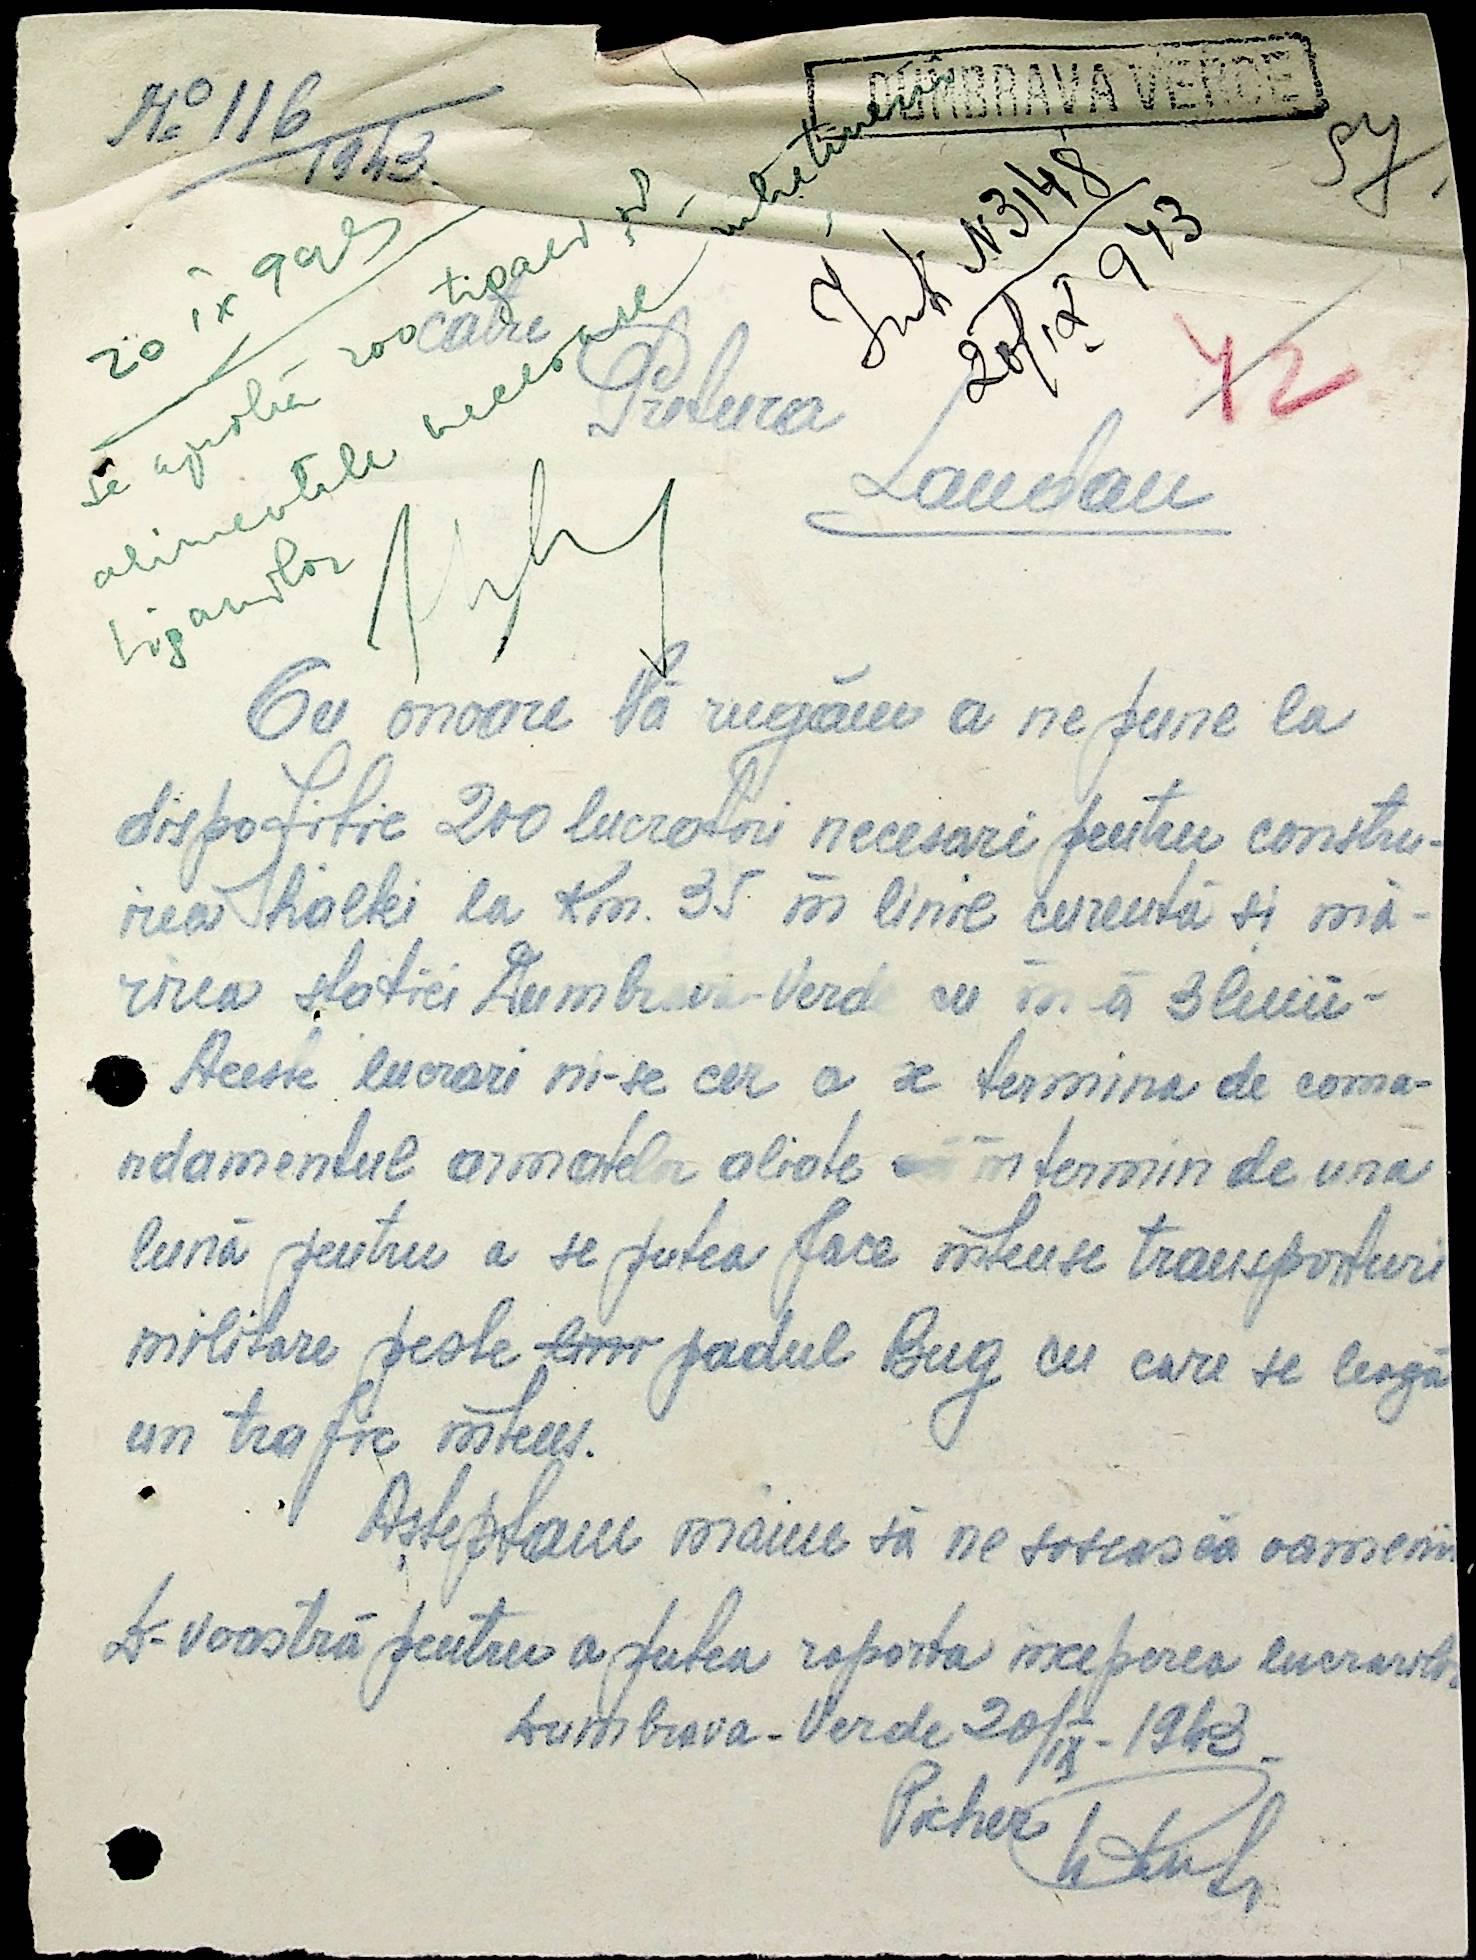 No 116
1943.
DUMBRAVA VERDE
57
Int N 3148
20/IX 943
42
20 IX 943
Se aprobă 200 tigani și
alimentele necesare întreținerii
tiganilor
catre
Pretura
Landau
Cu onoare Vă rugăm a ne pune la
dispozitie 200 lucratori necesari pentru constru-
irea haltei la Km. 35 în linie curentă si mă-
rirea statiei Dumbrava-Verde cu în ă 3 linii-
Aceste lucrari ni-se cer a se termina de coma-
ndamentul armatelor aliate în termin de una
lună pentru a se putea face intense transporturi
militare peste podul Bug cu care se leagă
un trafic intens.
Așteptam mâine să ne sosească oamenii
D-voastră pentru a putea raporta inceperea lucrarilor
Dumbrava-Verde 20/IX-1943
Picher